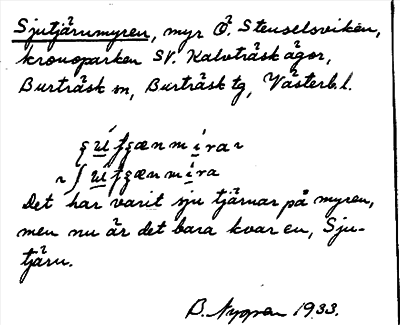 Sjutjärnmyren, myr Ö. Stenselsviken,
kronoparken SV. Kalvträsk ägor,
Burträsk sn, Burträsk tg, Västerb. l.
Det har varit sju tjärnar på myren,
men nu är det bara kvar en, Sju-
tjärn.
B. Nygren 1933.